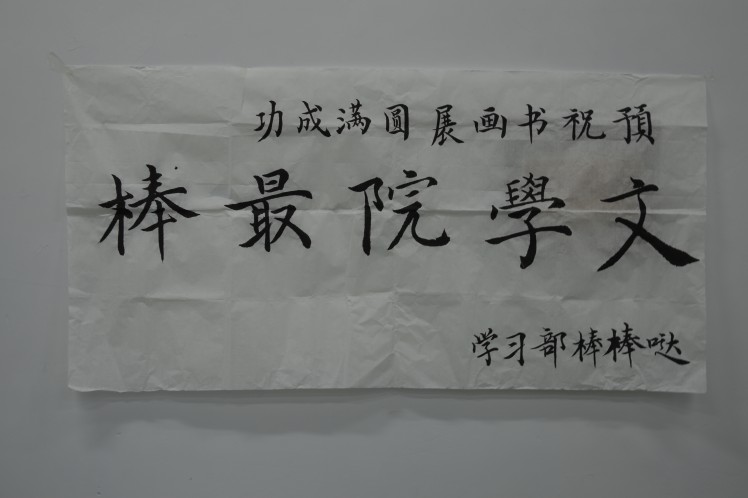 預祝书画展圓满成功
文學院最棒
学习部棒棒哒